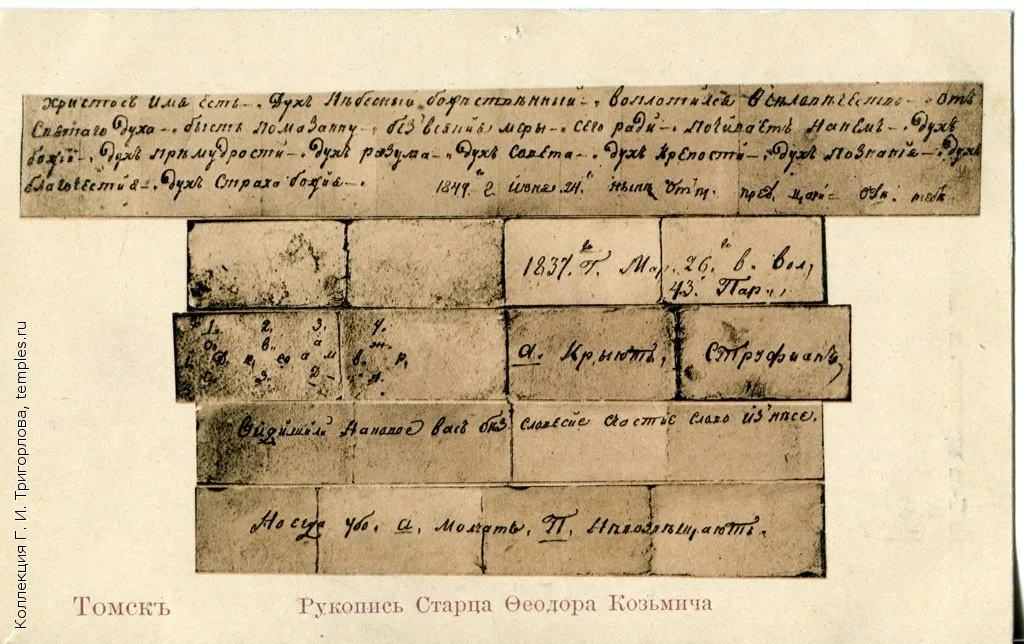 Христосъ Имя Есть. Духъ Небесный божественный. воплотился Отъ
Святаго Духа. бысть помазанну. без всякия меры. сего ради. почиваетъ Нанемъ. Духъ
божій. Духъ премудрости. Духъ разума. Духъ Совета. духъ Крепости. Духъ познанія. Духъ
благочестия. Духъ Страха божія. 1849. г июня. 24.
1837. г. Мар. 26. в. Вол,
43. Пар.
1. 2. 3. 4.
а. Крыютъ, Струфианъ,
Видишили Накакое васъ без словесие счастие слово изнесе.
Но егда убо. а, Молчатъ, П, Невозвещаютъ.
Томскъ Рукопись Старца Ѳеодора Козьмича
Коллекция Г. И. Тригорлова, temples.ru